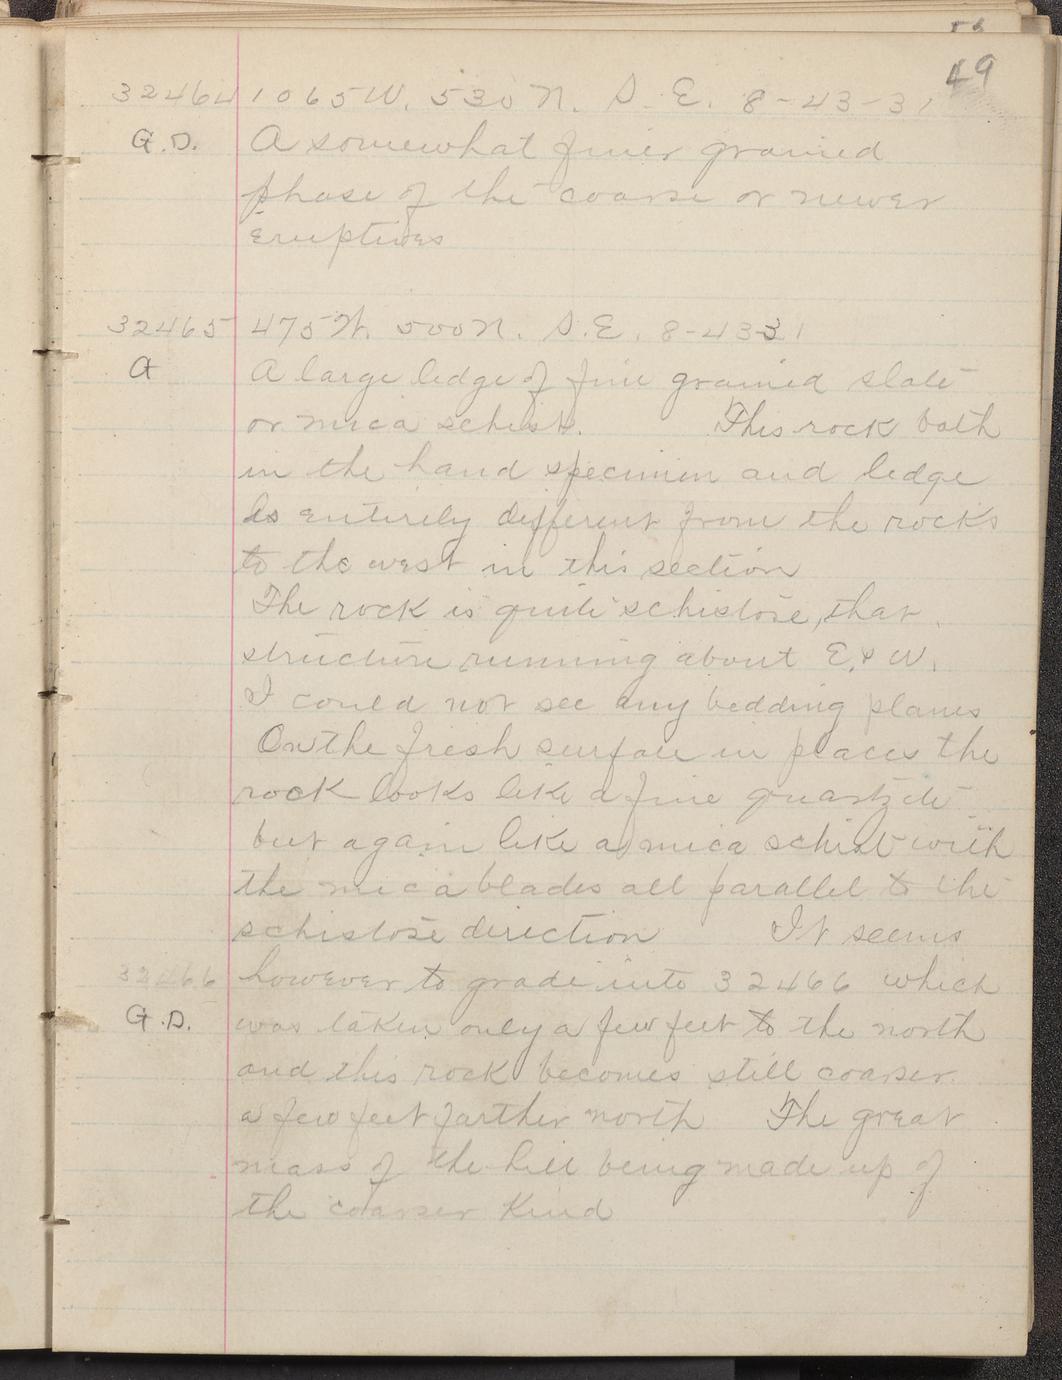 49
32464 1065 W. 530 N. S. E. 8-43-31
G.D. A somewhat finer grained
phase of the coarse or newer
Eruptives
32465 475 W. 500 N. S. E. 8-43-31
A A large ledge of fine grained slate
or mica schist. This rock both
in the hand specimen and ledge
is entirely different from the rocks
to the west in this section
The rock is quite schistose, that
structure running about E. & W.
I could not see any bedding planes
On the fresh surface in places the
rock looks like a fine quartzite
but again like a mica schist with
the mica blades all parallel to the
schistose direction It seems
32466 however to grade into 32466 which
G.D. was taken only a few feet to the north
and this rock becomes still coarser
a few feet farther north The great
mass of the hill being made up of
the coarser kind